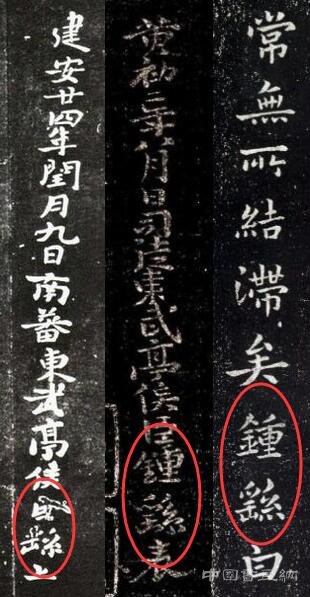 建安廿四年閏月九日南蕃東武亭侯臣繇上
黃初二年八月日司徒東武亭侯臣鍾繇表
常無所結滯矣鍾繇白